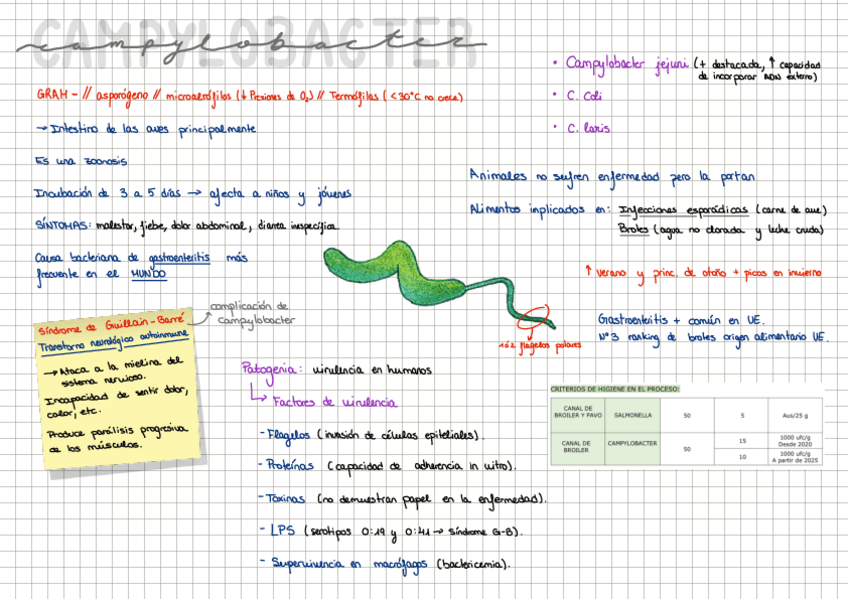 CAMPYLOBACTER
campylobacter
GRAM - // asporógeno // microaerófilos (↓ Presiones de O₂) // Termófilas ( <30°C no crece)
→ Intestino de las aves principalmente
Es una zoonosis
Incubación de 3 a 5 días → afecta a niños y jóvenes
SÍNTOMAS: malestar, fiebe, dolor abdominal, diarrea inespecífica.
Causa bacteriana de gastroenteritis más
frecuente en el MUNDO
• Campylobacter jejuni (+ destacada, ↑ capacidad
de incorporar ADN externo)
• C. Coli
• C. laris
Animales no sufren enfermedad pero la portan
Alimentos inplicados en: Infecciones esporádicas (carne de ave)
Brotes (agua no clorada y leche cruda)
↑ verano y princ. de otoño + picos en invierno
Gastroenteritis + común en UE.
Nº3 ranking de brotes origen alimentario UE.
1 ó 2 flagelos polares
Síndrome de Guillain-Barré
Transtorno neurológico autoinmune
→ Ataca a la mielina del
sistema nervioso.
Incapacidad de sentir dolor,
calor, etc.
Produce parálisis progresiva
de los músculos.
complicación de
Campylobacter
Patogenia: virulencia en humanos
Factores de virulencia
- Flagelos (invasión de células epiteliales).
- Proteínas (capacidad de adherencia in vitro).
- Toxinas (no demuestran papel en la enfermedad).
- LPS (serotipos O:19 y O:41 → Síndrome G-B).
- Supervivencia en macrófagos (bacteriemia).
CRITERIOS DE HIGIENE EN EL PROCESO:
CANAL DE
BROILER Y PAVO
SALMONELLA
50
5
Aus/25 g
CANAL DE
BROILER
CAMPYLOBACTER
50
15
1000 ufc/g
Desde 2020
10
1000 ufc/g
A partir de 2025